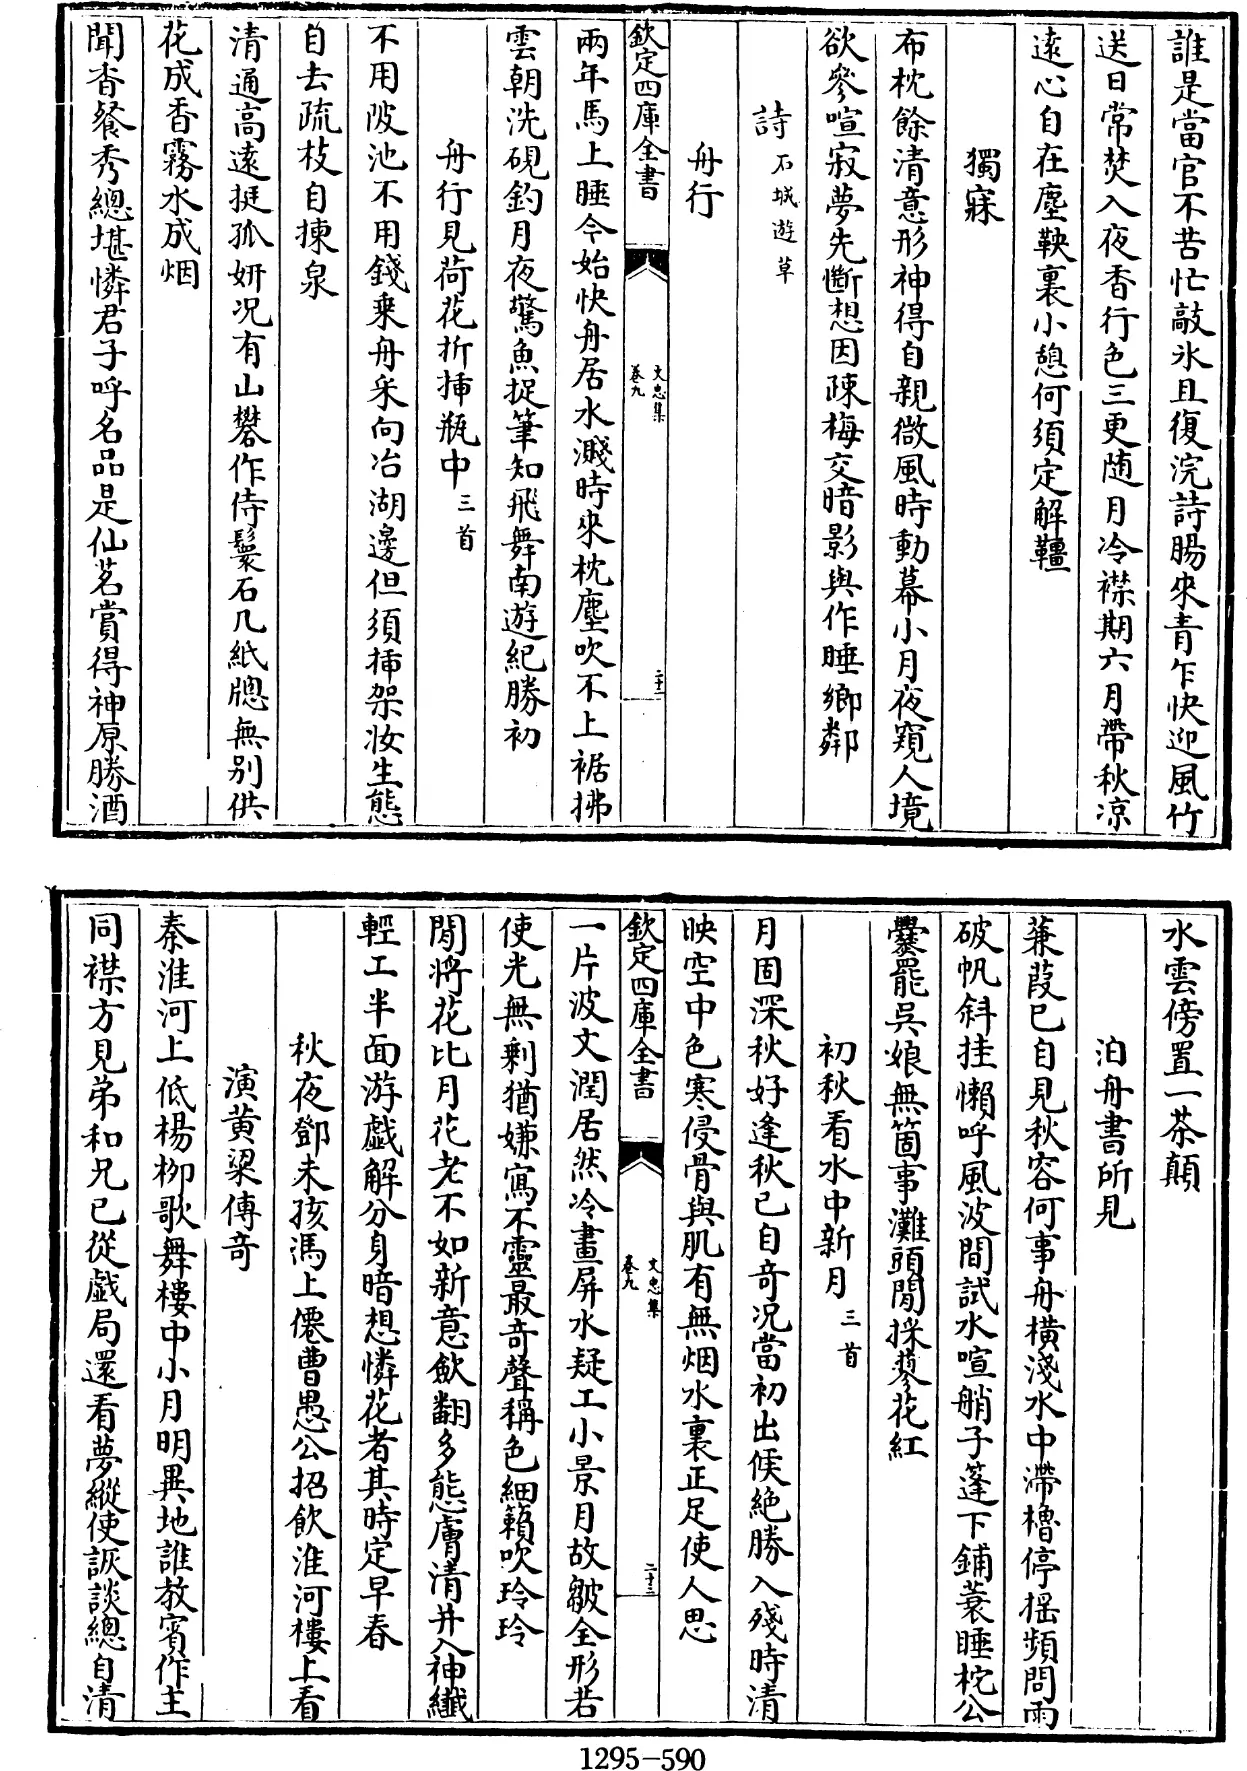 誰是當官不苦忙敲氷且復浣詩腸來青乍快迎風竹
送日常焚入夜香行色三更随月冷襟期六月帶秋凉
遠心自在塵鞅裏小憩何須定解韁
獨寐
布枕餘清意形神得自親微風時動幕小月夜窺人境
欲參喧寂夢先斷想因疎梅交暗影與作睡鄉鄰
詩 石城遊草
舟行
欽定四庫全書
文忠集
卷九
二十二
兩年馬上睡今始快舟居水濺時來枕塵吹不上裾拂
雲朝洗硯釣月夜驚魚捉筆知飛舞南遊紀勝初
舟行見荷花折揷瓶中 三首
不用陂池不用錢乗舟采向冶湖邊但須揷架妝生態
自去疏枝自揀泉
清通高遠挺孤妍况有山礬作侍鬟石几紙牕無别供
花成香霧水成烟
聞香餐秀總堪憐君子呼名品是仙茗賞得神原勝酒
水雲傍置一茶顛
泊舟書所見
蒹葭已自見秋容何事舟橫淺水中滯櫓停橈頻問雨
破帆斜挂懶呼風波間試水喧艄子蓬下鋪蓑睡柁公
爨罷吳娘無箇事灘頭閒採蓼花紅
初秋看水中新月 三首
月固深秋好逢秋已自奇况當初出候絶勝入殘時清
映空中色寒侵骨與肌有無烟水裏正足使人思
欽定四庫全書
文忠集
卷九
二十三
一片波文潤居然冷畫屏水疑工小景月故皴全形若
使光無剩猶嫌寫不靈最奇聲稱色細籟吹玲玲
閒將花比月花老不如新意歛翻多態膚清并入神纖
輕工半面游戲解分身暗想憐花者其時定早春
秋夜鄧未孩馮上僊曹愚公招飲淮河樓上看
演黄粱傳奇
秦淮河上低楊栁歌舞樓中小月明異地誰教賓作主
同襟方見弟和兄已從戲局還看夢縱使詼談總自清
1295-590